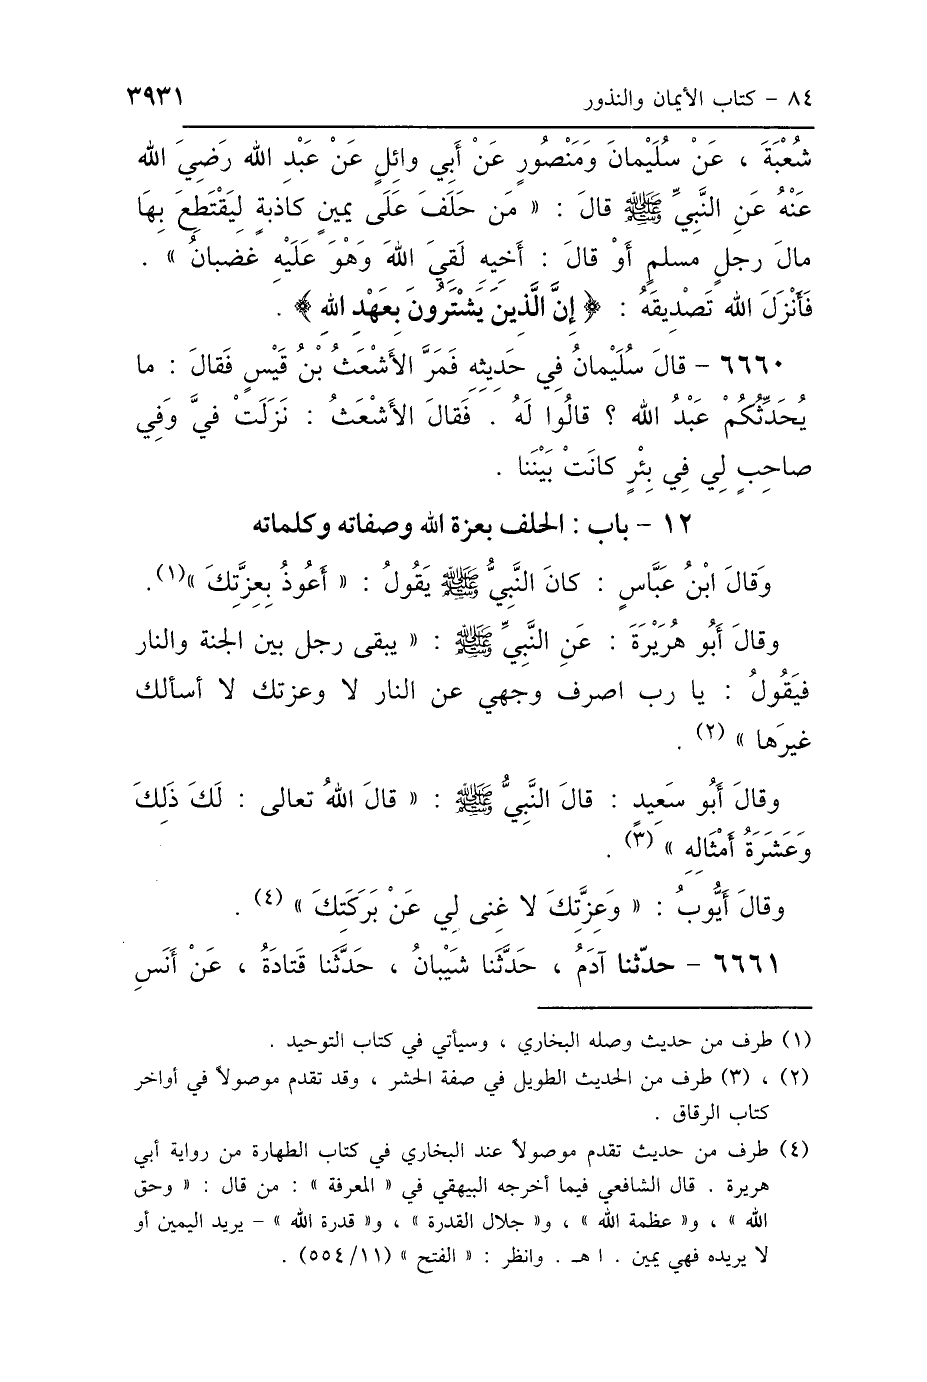 ٨٤ - كتاب الأيمان والنذور ٣٩٣١
شُعْبَةَ ، عَنْ سُلَيْمانَ وَمَنْصُورٍ عَنْ أَبِي وائِلٍ عَنْ عَبْدِ الله رَضِيَ الله
عَنْهُ عَنِ النَّبِيِّ ﷺ قالَ : « مَن حَلَفَ عَلَى يمينٍ كاذبةٍ لِيَقْتَطِعَ بِهَا
مالَ رجلٍ مسلمٍ أَوْ قالَ : أَخيهِ لَقِيَ اللهَ وَهْوَ عَلَيْهِ غضبانُ » .
فَأَنْزَلَ الله تَصْدِيقَهُ : ﴿ إِنَّ الَّذِينَ يَشْتَرُونَ بِعَهْدِ اللهِ ﴾ .
٦٦٦٠ - قالَ سُلَيْمانُ فِي حَدِيثِهِ فَمَرَّ الأَشْعَثُ بْنُ قَيْسٍ فَقالَ : ما
يُحَدِّثُكُمْ عَبْدُ الله ؟ قالُوا لَهُ . فَقالَ الأَشْعَثُ : نَزَلَتْ فيَّ وَفِي
صاحِبٍ لِي فِي بِئْرٍ كانَتْ بَيْنَنا .
١٢ - باب : الحلف بعزة الله وصفاته وكلماته
وَقالَ ابْنُ عَبَّاسٍ : كانَ النَّبِيُّ ﷺ يَقُولُ : « أَعُوذُ بِعِزَّتِكَ »(١).
وقالَ أَبُو هُرَيْرَةَ : عَنِ النَّبِيِّ ﷺ : « يبقى رجل بين الجنة والنار
فيَقُولُ : يا رب اصرف وجهي عن النار لا وعزتك لا أسألك
غيرَها » (٢) .
وقالَ أَبُو سَعِيدٍ : قالَ النَّبِيُّ ﷺ : « قالَ اللهُ تعالى : لَكَ ذَلِكَ
وَعَشَرَةُ أَمْثَالِهِ » (٣) .
وقالَ أَيُّوبُ : « وَعِزَّتِكَ لا غِنى لي عَنْ بَرَكَتِكَ » (٤) .
٦٦٦١ - حدّثنا آدَمُ ، حَدَّثَنا شَيْبانُ ، حَدَّثَنا قَتادَةُ ، عَنْ أَنَسِ
(١) طرف من حديث وصله البخاري ، وسيأتي في كتاب التوحيد .
(٢) ، (٣) طرف من الحديث الطويل في صفة الحشر ، وقد تقدم موصولاً في أواخر
كتاب الرقاق .
(٤) طرف من حديث تقدم موصولاً عند البخاري في كتاب الطهارة من رواية أبي
هريرة . قال الشافعي فيما أخرجه البيهقي في « المعرفة » : من قال : « وحق
الله » ، و« عظمة الله » ، و« جلال القدرة » ، و« قدرة الله » - يريد اليمين أو
لا يريده فهي يمين . ا هـ . وانظر : « الفتح » (١١/ ٥٥٤) .